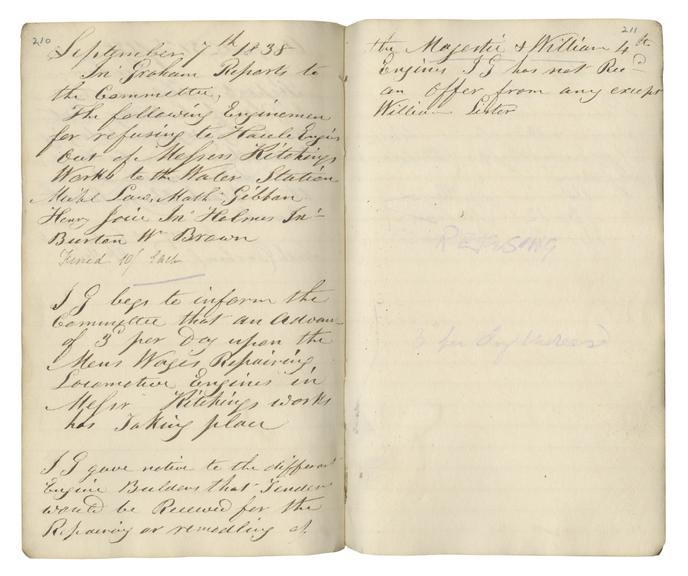 210
September 7th 1838
Jn Graham Reports to
the Committee,
The following Enginemen
for refusing to Haule Engins
out of Messrs Kitchings
Works to the Water Station
Michl Law, Math Gibbon
Henry Joice Jn Holmes Jn
Burton Wm Brown
Fined 10/ Each
J G begs to inform the
Committee that an Advan
of 3d per Day upon the
Mens Wages Repairing
Locomotive Engines in
Messr Kitchings works
has Taking place
J G gave notice to the different
Engine Builders that Tenders
would be Received for the
Repairing or remodling of
211
the Majestic & William 4th
Engines J G has not Recd
an Offer from any except
William Lister
REFUSING
3